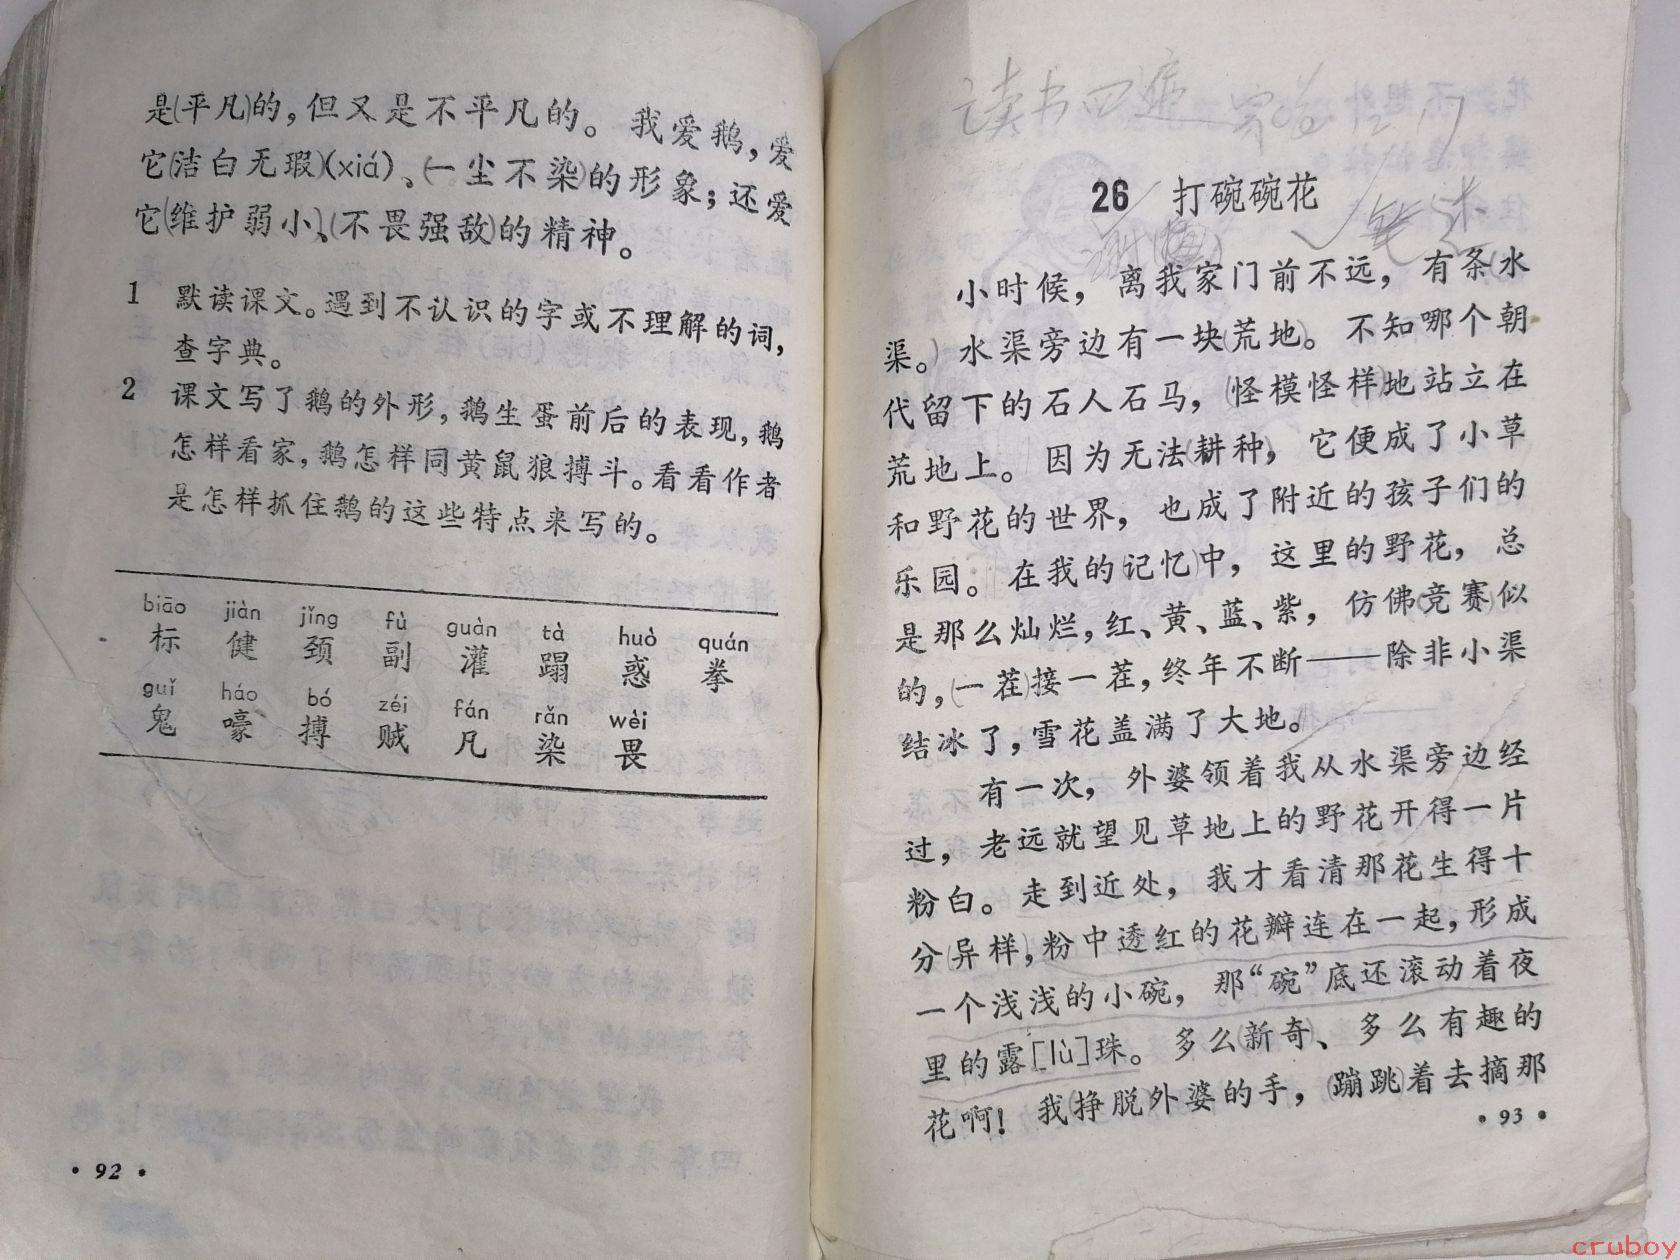 是(平凡)的，但又是不平凡的。我爱鹅，爱
它(洁白无瑕)(xiá)、(一尘不染)的形象；还爱
它(维护弱小)、(不畏强敌)的精神。
1 默读课文。遇到不认识的字或不理解的词，
查字典。
2 课文写了鹅的外形，鹅生蛋前后的表现，鹅
怎样看家，鹅怎样同黄鼠狼搏斗。看看作者
是怎样抓住鹅的这些特点来写的。
biāo jiàn jǐng fù guàn tà huò quán
标 健 颈 副 灌 蹋 惑 拳
guǐ háo bó zéi fán rǎn wèi
鬼 嚎 搏 贼 凡 染 畏
·92·
读书四遍
26 打碗碗花
小时候，离我家门前不远，有条水
渠。)水渠旁边有一块(荒地)。不知哪个朝
代留下的石人石马，(怪模怪样)地站立在
荒地上。因为无法(耕种)，它便成了小草
和野花的世界，也成了附近的孩子们的
乐园。在我的(记忆)中，这里的野花，总
是那么灿烂，红、黄、蓝、紫，仿佛(竞赛)似
的，(一茬)接一茬，终年不断——除非小渠
结冰了，雪花盖满了大地。
有一次，外婆领着我从水渠旁边经
过，老远就望见草地上的野花开得一片
粉白。走到近处，我才看清那花生得十
分(异样)，粉中透红的花瓣连在一起，形成
一个浅浅的小碗，那“碗”底还滚动着夜
里的露[lù]珠。多么(新奇)、多么有趣的
花啊！我(挣脱)外婆的手，(蹦跳)着去摘那
·93·
cruboy